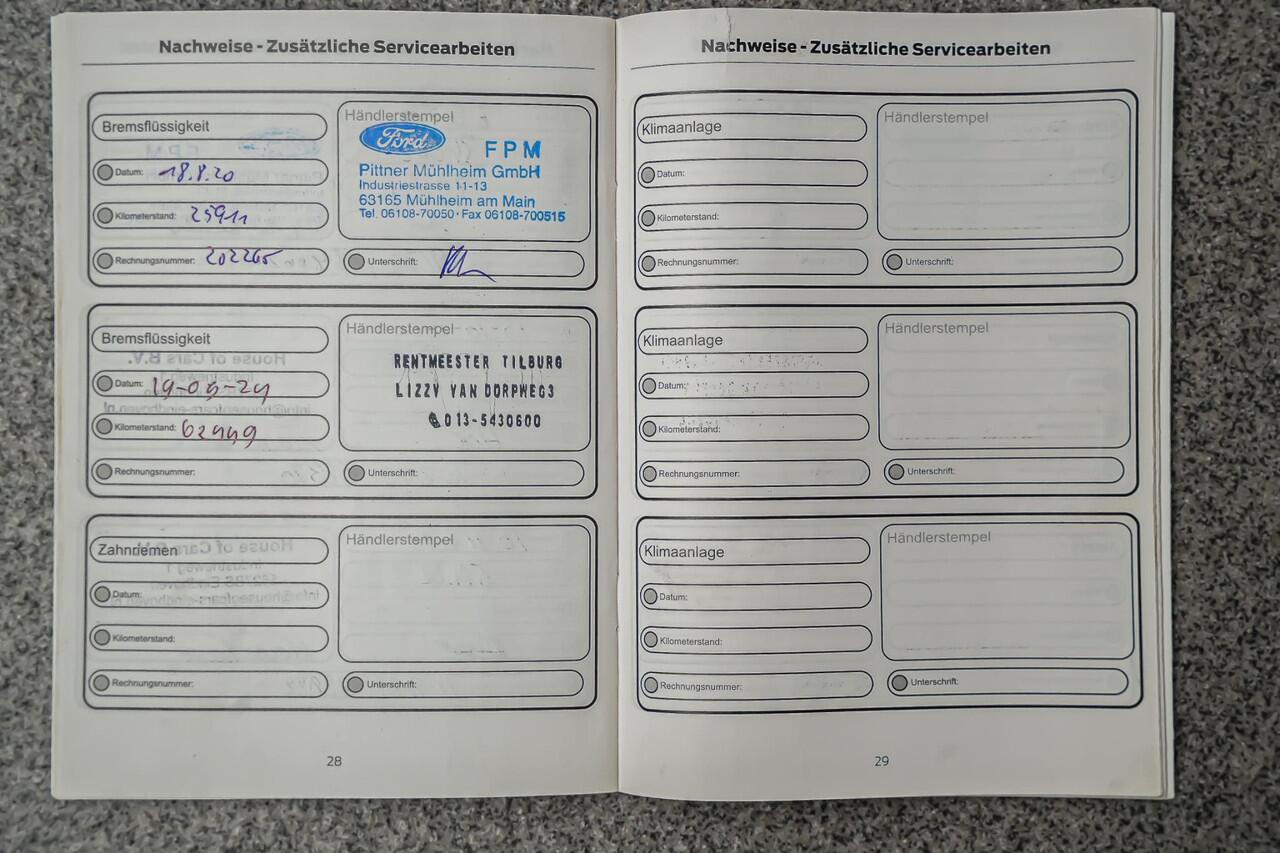 Nachweise - Zusätzliche Servicearbeiten
Bremsflüssigkeit
Datum: 18.8.20
Kilometerstand: 25911
Rechnungsnummer: 202265
Händlerstempel
Ford
FPM
Pittner Mühlheim GmbH
Industriestrasse 11-13
63165 Mühlheim am Main
Tel. 06108-70050 · Fax 06108-700515
Unterschrift:
Bremsflüssigkeit
Datum: 19-09-24
Kilometerstand: 62449
Rechnungsnummer:
Händlerstempel
RENTMEESTER TILBURG
LIZZY VAN DORPWEG3
013-5430600
Unterschrift:
Zahnriemen
Datum:
Kilometerstand:
Rechnungsnummer:
Händlerstempel
Unterschrift:
28
Nachweise - Zusätzliche Servicearbeiten
Klimaanlage
Datum:
Kilometerstand:
Rechnungsnummer:
Händlerstempel
Unterschrift:
Klimaanlage
Datum:
Kilometerstand:
Rechnungsnummer:
Händlerstempel
Unterschrift:
Klimaanlage
Datum:
Kilometerstand:
Rechnungsnummer:
Händlerstempel
Unterschrift:
29